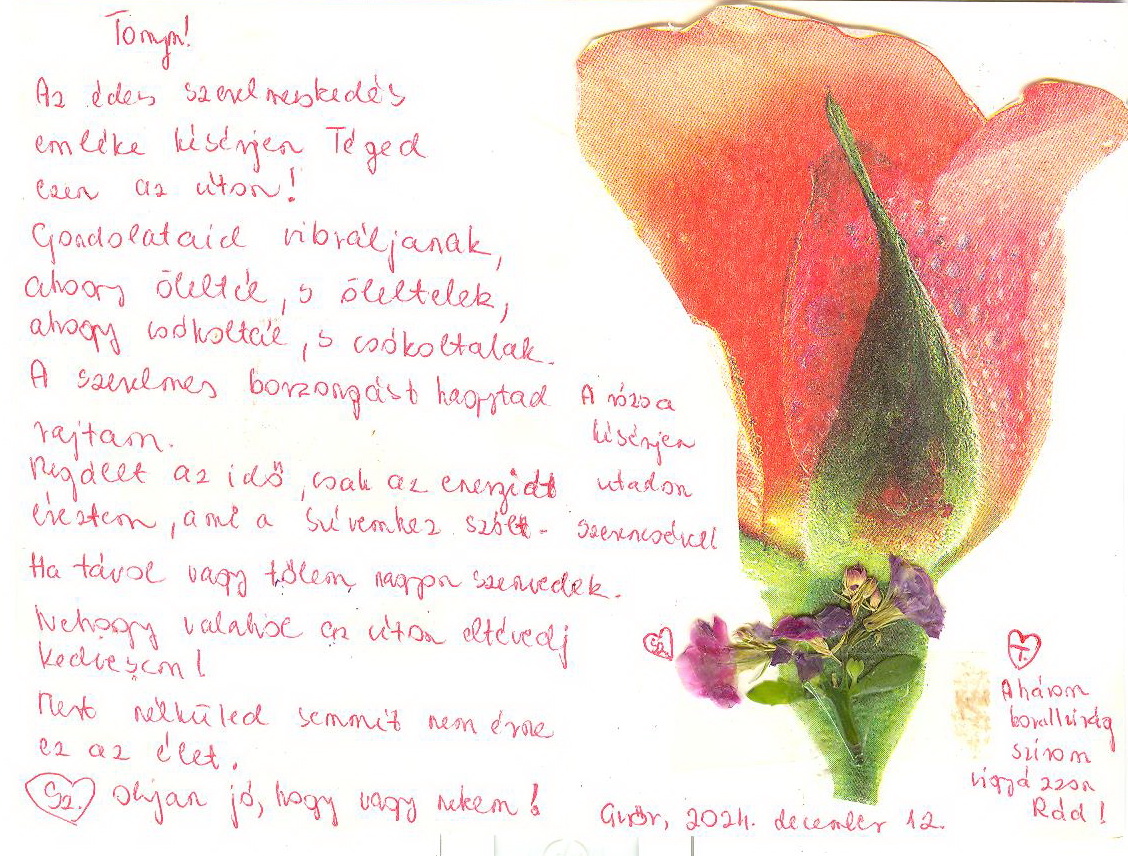 Tomyn!
Az édes szerelmeskedés
emléke kísérjen Téged
ezen az úton!
Gondolataid vibráljanak,
ahogy öleltél, s öleltelek,
ahogy csókoltál, s csókoltalak.
A szerelmes borzongást hagytad
rajtam.
Megállt az idő, csak az energiát
éreztem, ami a szívemhez szólt.
Ha távol vagy tőlem, nagyon szenvedek.
Nehogy valahol az úton eltévedj
kedvesem!
Mert nélküled semmit nem érne
ez az élet.
Sz. Olyan jó, hogy vagy nekem!
A rózsa
kísérjen
utadon
szerencsével
Sz.
T.
A három
korallvirág
szirom
vigyázzon
Rád!
Győr, 2024. december 12.